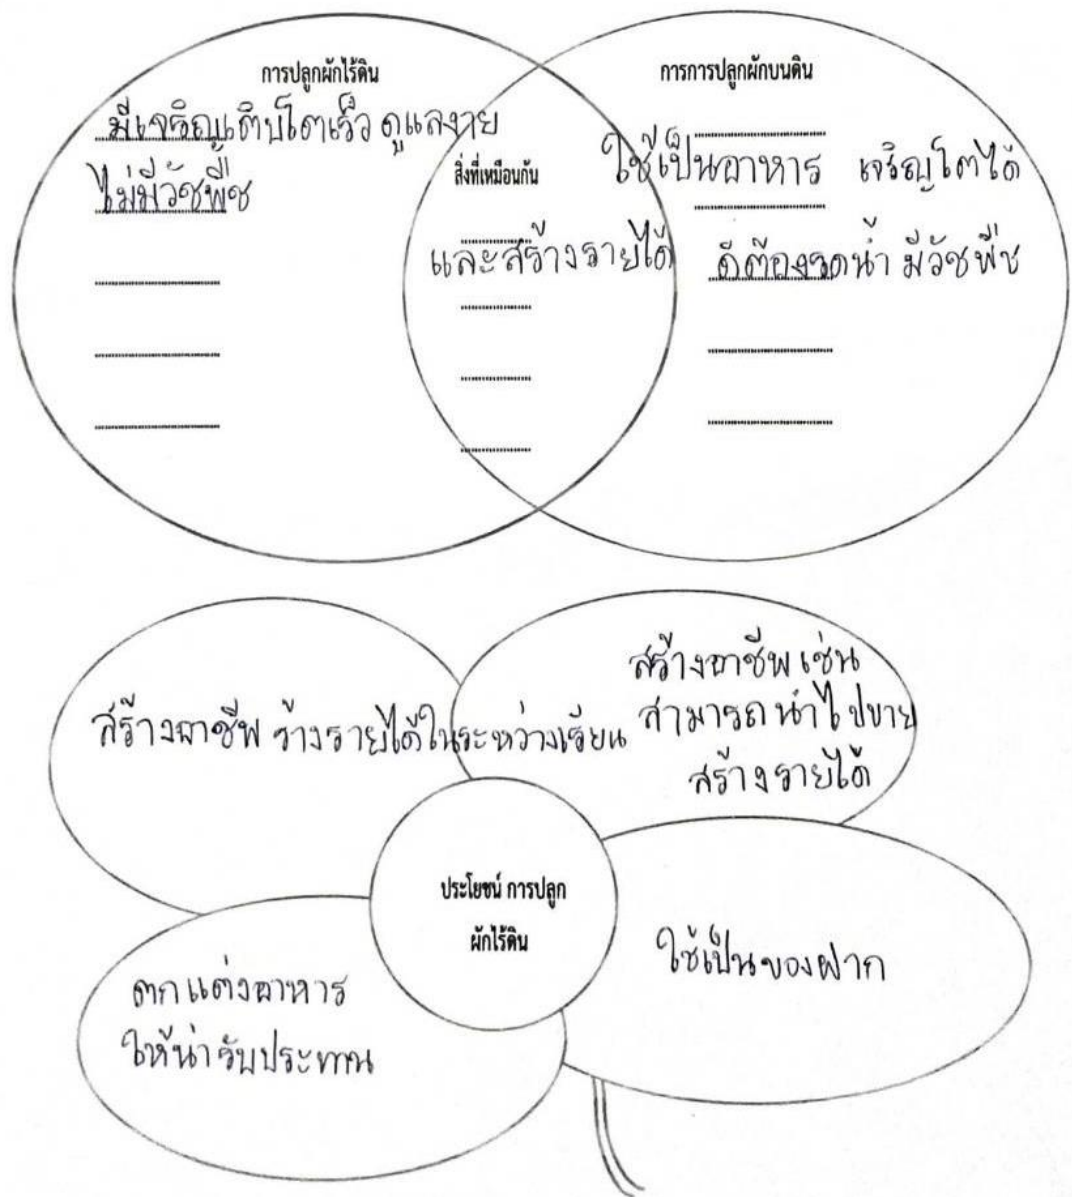 การปลูกผักไร้ดิน
มีเจริญเติบโตเร็ว ดูแลงาย
ไม่มีวัชพืช
สิ่งที่เหมือนกัน
และสร้างรายได้
การการปลูกผักบนดิน
ใช้เป็นอาหาร เจริญโตได้
ดีต้องรดน้ำ มีวัชพืช
สร้างอาชีพ ร้างรายได้ในระหว่างเรียน
สร้างอาชีพ เช่น
สามารถนำไปขาย
สร้างรายได้
ประโยชน์ การปลูก
ผักไร้ดิน
ตกแต่งอาหาร
ให้น่ารับประทาน
ใช้เป็นของฝาก